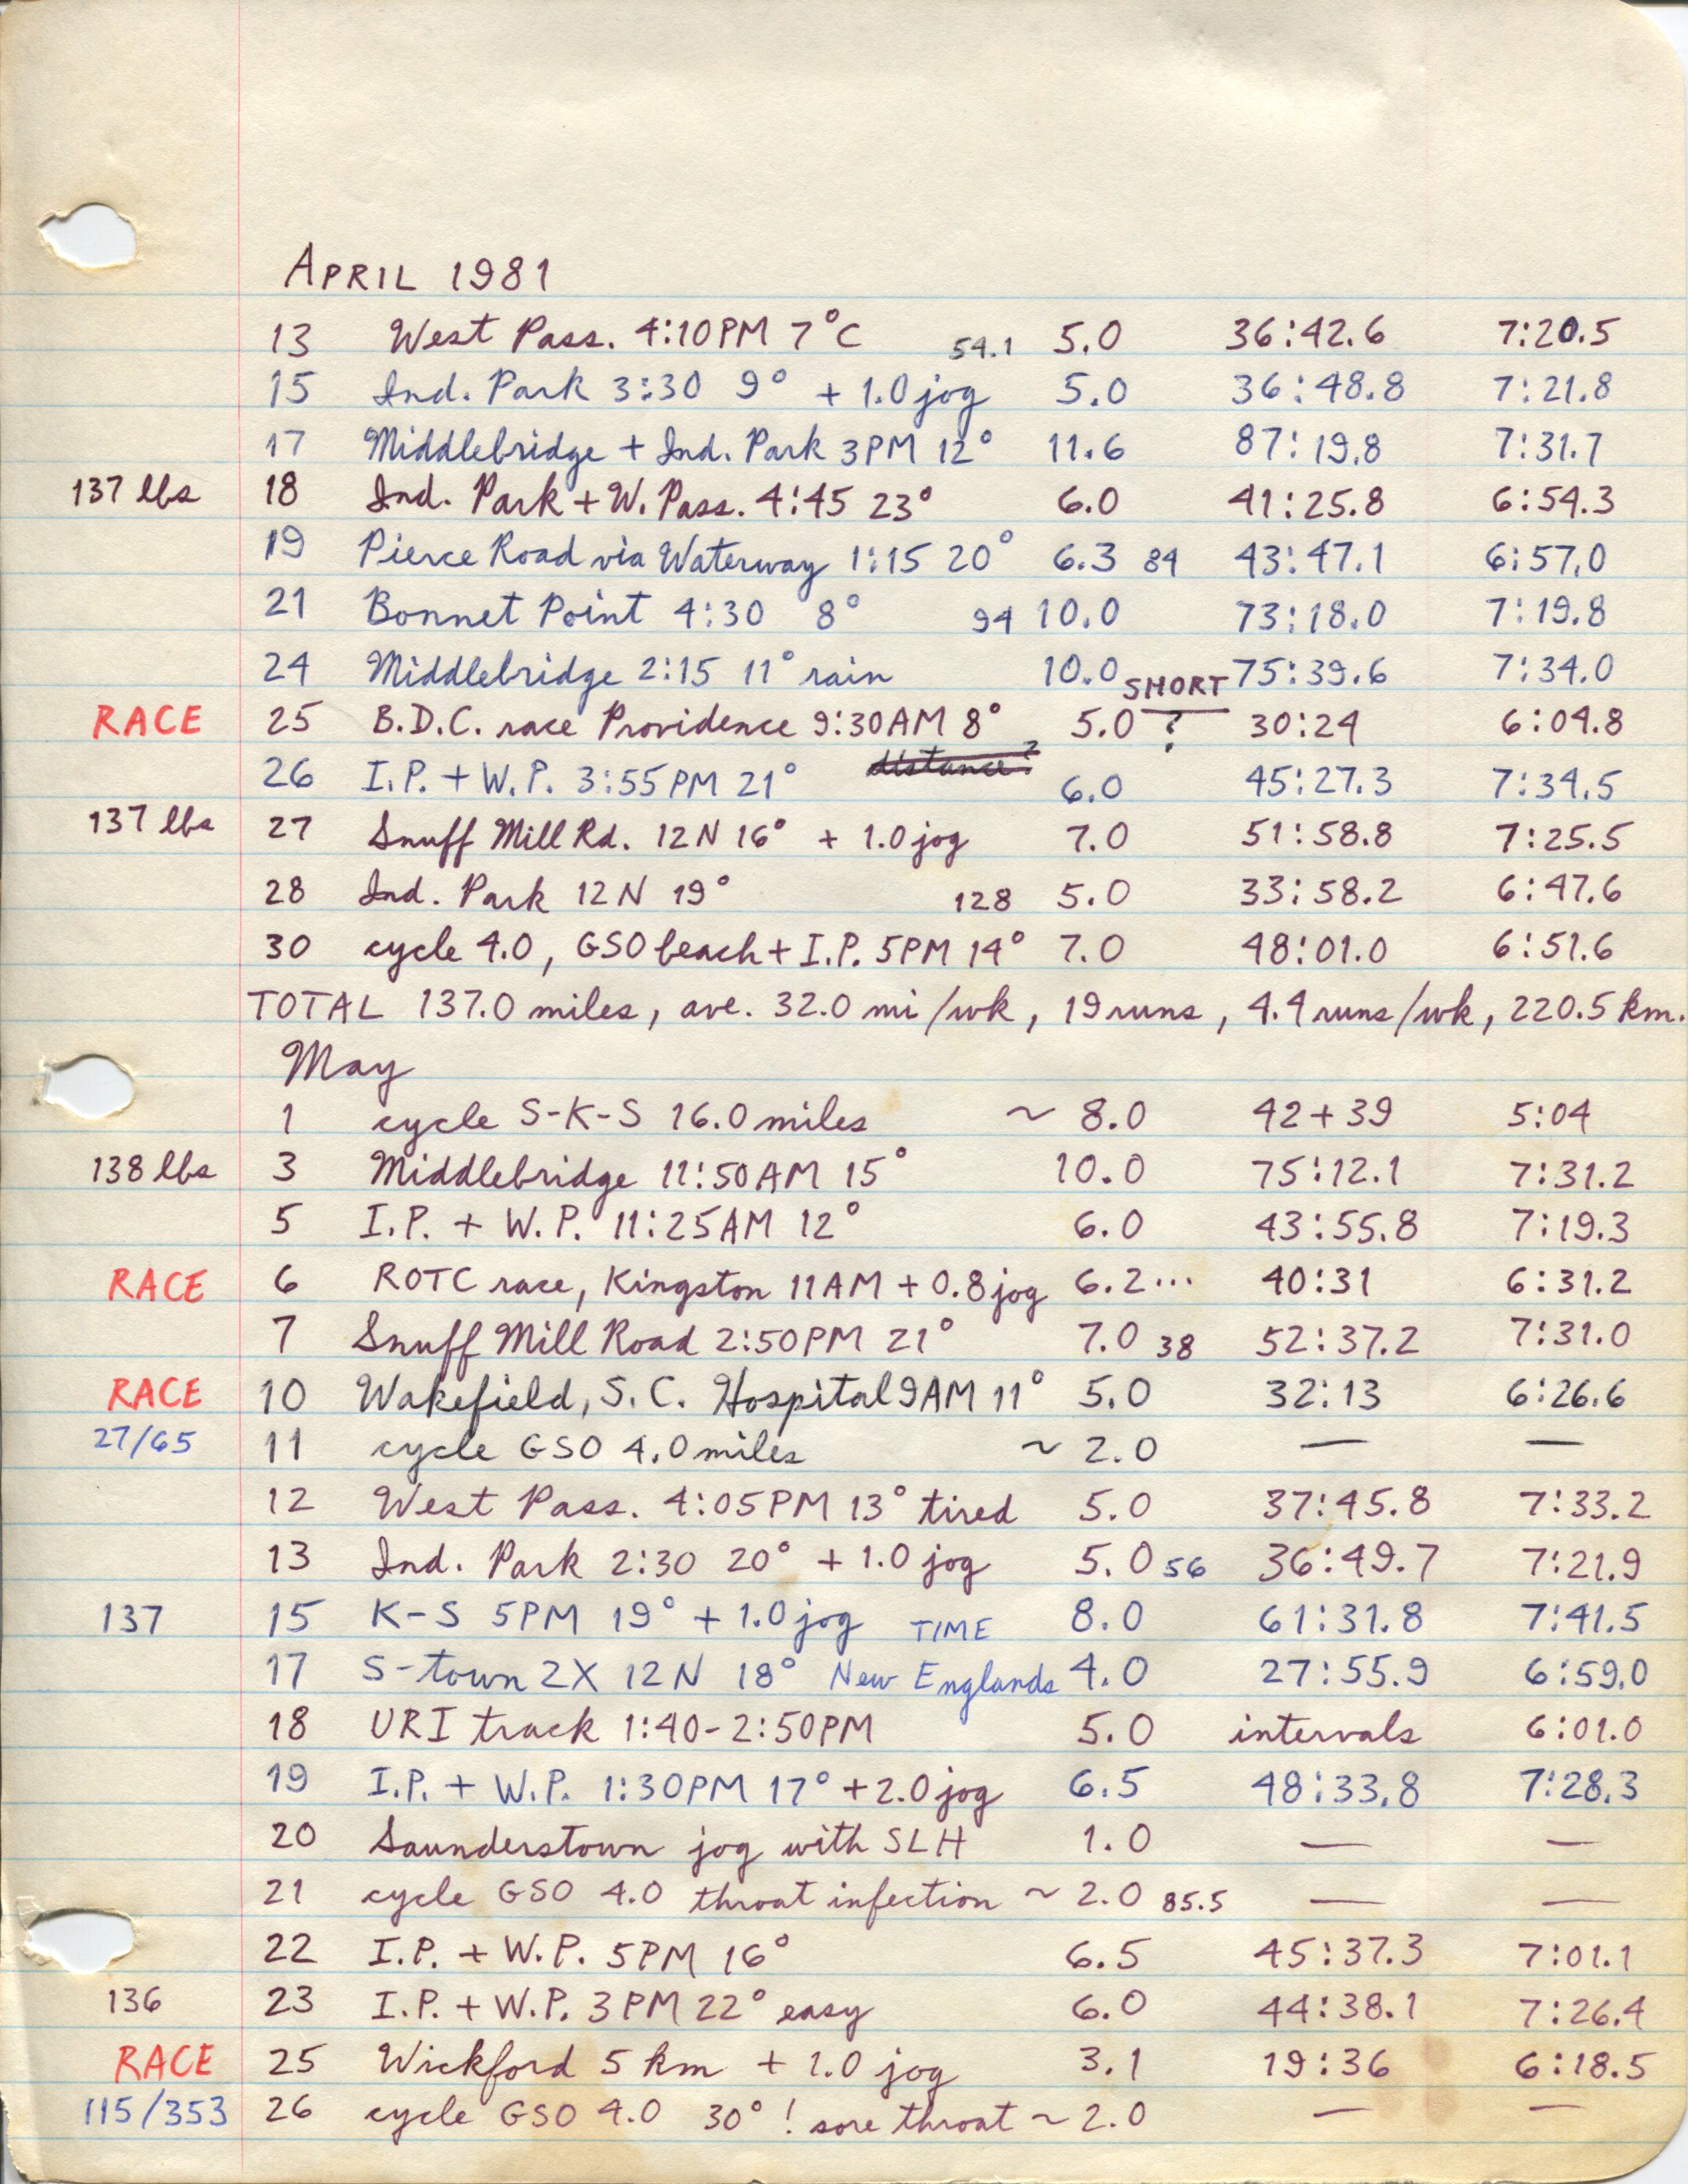 APRIL 1981
13 West Pass. 4:10PM 7°C 54.1 5.0 36:42.6 7:20.5
15 Ind. Park 3:30 9° + 1.0 jog 5.0 36:48.8 7:21.8
17 Middlebridge + Ind. Park 3PM 12° 11.6 87:19.8 7:31.7
137 lbs 18 Ind. Park + W. Pass. 4:45 23° 6.0 41:25.8 6:54.3
19 Pierce Road via Waterway 1:15 20° 6.3 84 43:47.1 6:57.0
21 Bonnet Point 4:30 8° 94 10.0 73:18.0 7:19.8
24 Middlebridge 2:15 11° rain 10.0 75:39.6 7:34.0
SHORT
RACE 25 B.D.C. race Providence 9:30AM 8° 5.0 ? 30:24 6:04.8
distance?
26 I.P. + W.P. 3:55PM 21° 6.0 45:27.3 7:34.5
137 lbs 27 Snuff Mill Rd. 12N 16° + 1.0 jog 7.0 51:58.8 7:25.5
28 Ind. Park 12N 19° 128 5.0 33:58.2 6:47.6
30 cycle 4.0, GSO beach + I.P. 5PM 14° 7.0 48:01.0 6:51.6
TOTAL 137.0 miles, ave. 32.0 mi/wk, 19 runs, 4.4 runs/wk, 220.5 km.
May
1 cycle S-K-S 16.0 miles ~ 8.0 42+39 5:04
138 lbs 3 Middlebridge 11:50AM 15° 10.0 75:12.1 7:31.2
5 I.P. + W.P. 11:25AM 12° 6.0 43:55.8 7:19.3
RACE 6 ROTC race, Kingston 11AM + 0.8 jog 6.2... 40:31 6:31.2
7 Snuff Mill Road 2:50PM 21° 7.0 38 52:37.2 7:31.0
RACE 10 Wakefield, S.C. Hospital 9AM 11° 5.0 32:13 6:26.6
27/65 11 cycle GSO 4.0 miles ~ 2.0 — —
12 West Pass. 4:05PM 13° tired 5.0 37:45.8 7:33.2
13 Ind. Park 2:30 20° + 1.0 jog 5.0 56 36:49.7 7:21.9
137 15 K-S 5PM 19° + 1.0 jog TIME 8.0 61:31.8 7:41.5
17 S-town 2X 12N 18° New Englands 4.0 27:55.9 6:59.0
18 URI track 1:40-2:50PM 5.0 intervals 6:01.0
19 I.P. + W.P. 1:30PM 17° + 2.0 jog 6.5 48:33.8 7:28.3
20 Saunderstown jog with SLH 1.0 — —
21 cycle GSO 4.0 throat infection ~ 2.0 85.5 — —
22 I.P. + W.P. 5PM 16° 6.5 45:37.3 7:01.1
136 23 I.P. + W.P. 3PM 22° easy 6.0 44:38.1 7:26.4
RACE 25 Wickford 5 km + 1.0 jog 3.1 19:36 6:18.5
115/353 26 cycle GSO 4.0 30°! sore throat ~ 2.0 — —